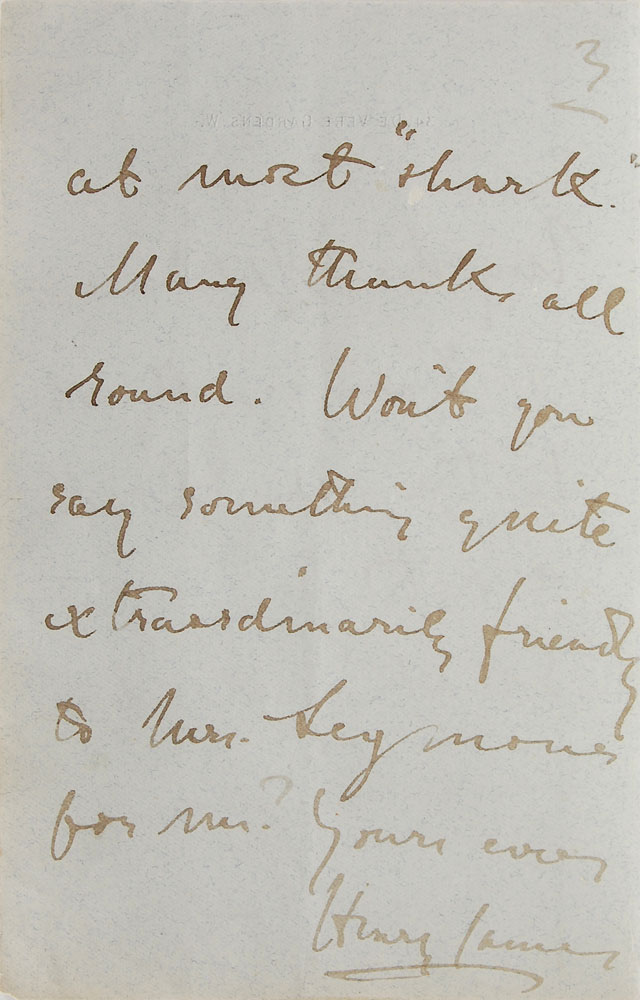 3
34, DE VERE GARDENS. W.
at most "shark."
Many thanks all
round. Won't you
say something quite
extraordinarily friendly
to Mrs. Seymour
for me? Yours ever
Henry James